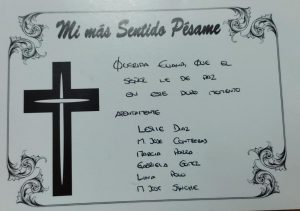 Mi más Sentido Pésame
QUERIDA ELIANA QUE EL
SEÑOR LE DE PAZ
EN ESTE DURO MOMENTO
ATENTAMENTE
LESLIE DIAZ
M. JOSE CONTRERAS
MARCIA PARRA
GABRIELA GÓMEZ
LUNA POLO
M. JOSE SANCHE